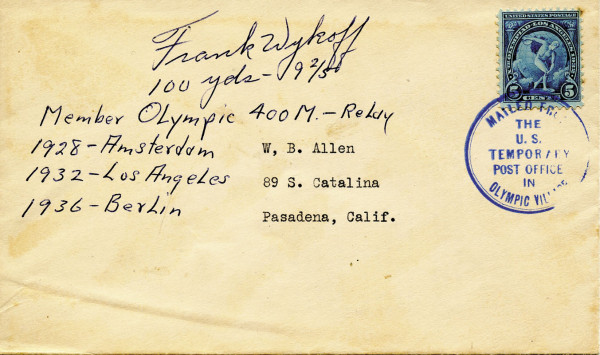 Frank Wykoff
100 yds - 9 2/5s
Member Olympic 400 M. - Relay
1928 - Amsterdam
1932 - Los Angeles
1936 - Berlin
W. B. Allen
89 S. Catalina
Pasadena, Calif.
UNITED STATES POSTAGE
5 CENTS 5
MAILED
THE
U. S.
TEMPORARY
POST OFFICE
IN
OLYMPIC